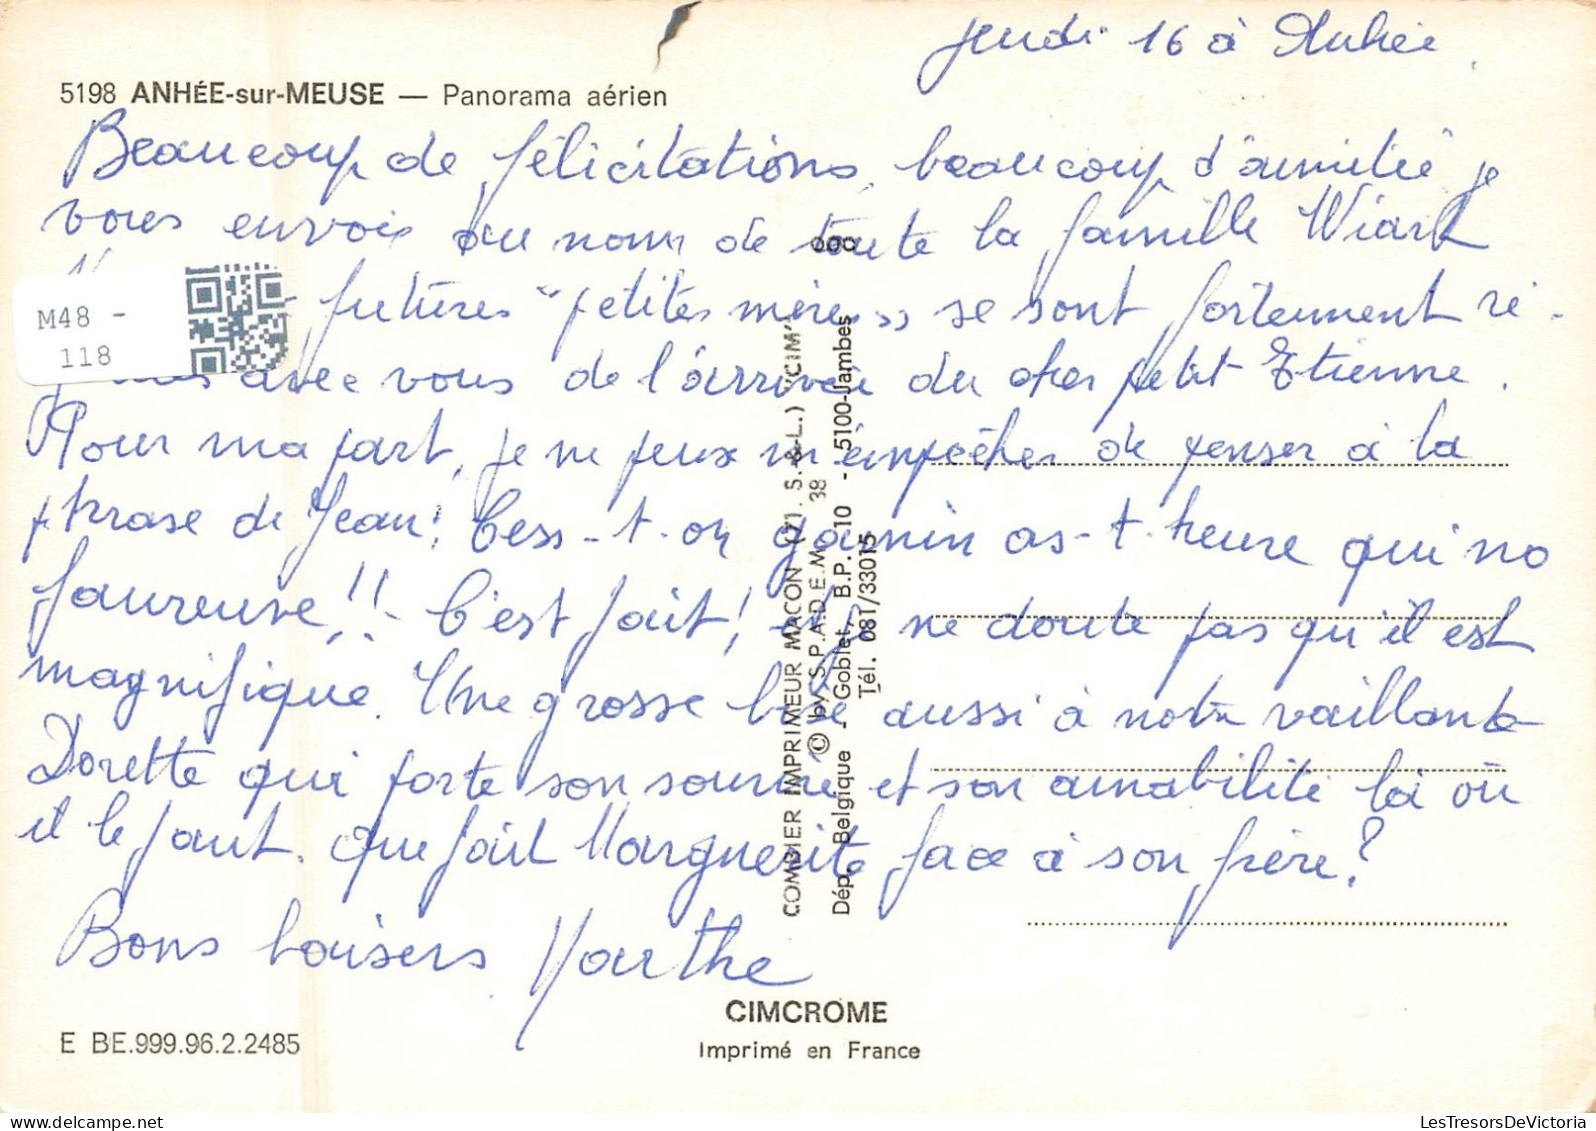 jeudi 16 à Anhée.
5198 ANHÉE-sur-MEUSE — Panorama aérien
Beaucoup de félicitations, beaucoup d'amitié je
vous envoie au nom de toute la famille Wiart
futures "petites mères" se sont fortement ré-
avec vous de l'arrivée du cher petit Etienne.
Pour ma part, je ne peux m'empêcher de penser à la
phrase de Jean: Cess-t-on gamin as-t-heure qui no
faureuve!! - C'est fait! et je ne doute pas qu'il est
magnifique. Une grosse bise aussi à notre vaillante
Dorette qui porte son sourire et son amabilité là où
il le faut. Que fait Marguerite face à son frère?
Bons baisers Marthe
M48 -
118
COMBIER IMPRIMEUR MACON (71. S.-&-L.) "CIM"
© by S.P.A.D.E.M. 38
Dép. Belgique - Goblet, B.P. 10 - 5100-Jambes
Tél. 081/33015
CIMCROME
Imprimé en France
E BE.999.96.2.2485
LesTresorsDeVictoria